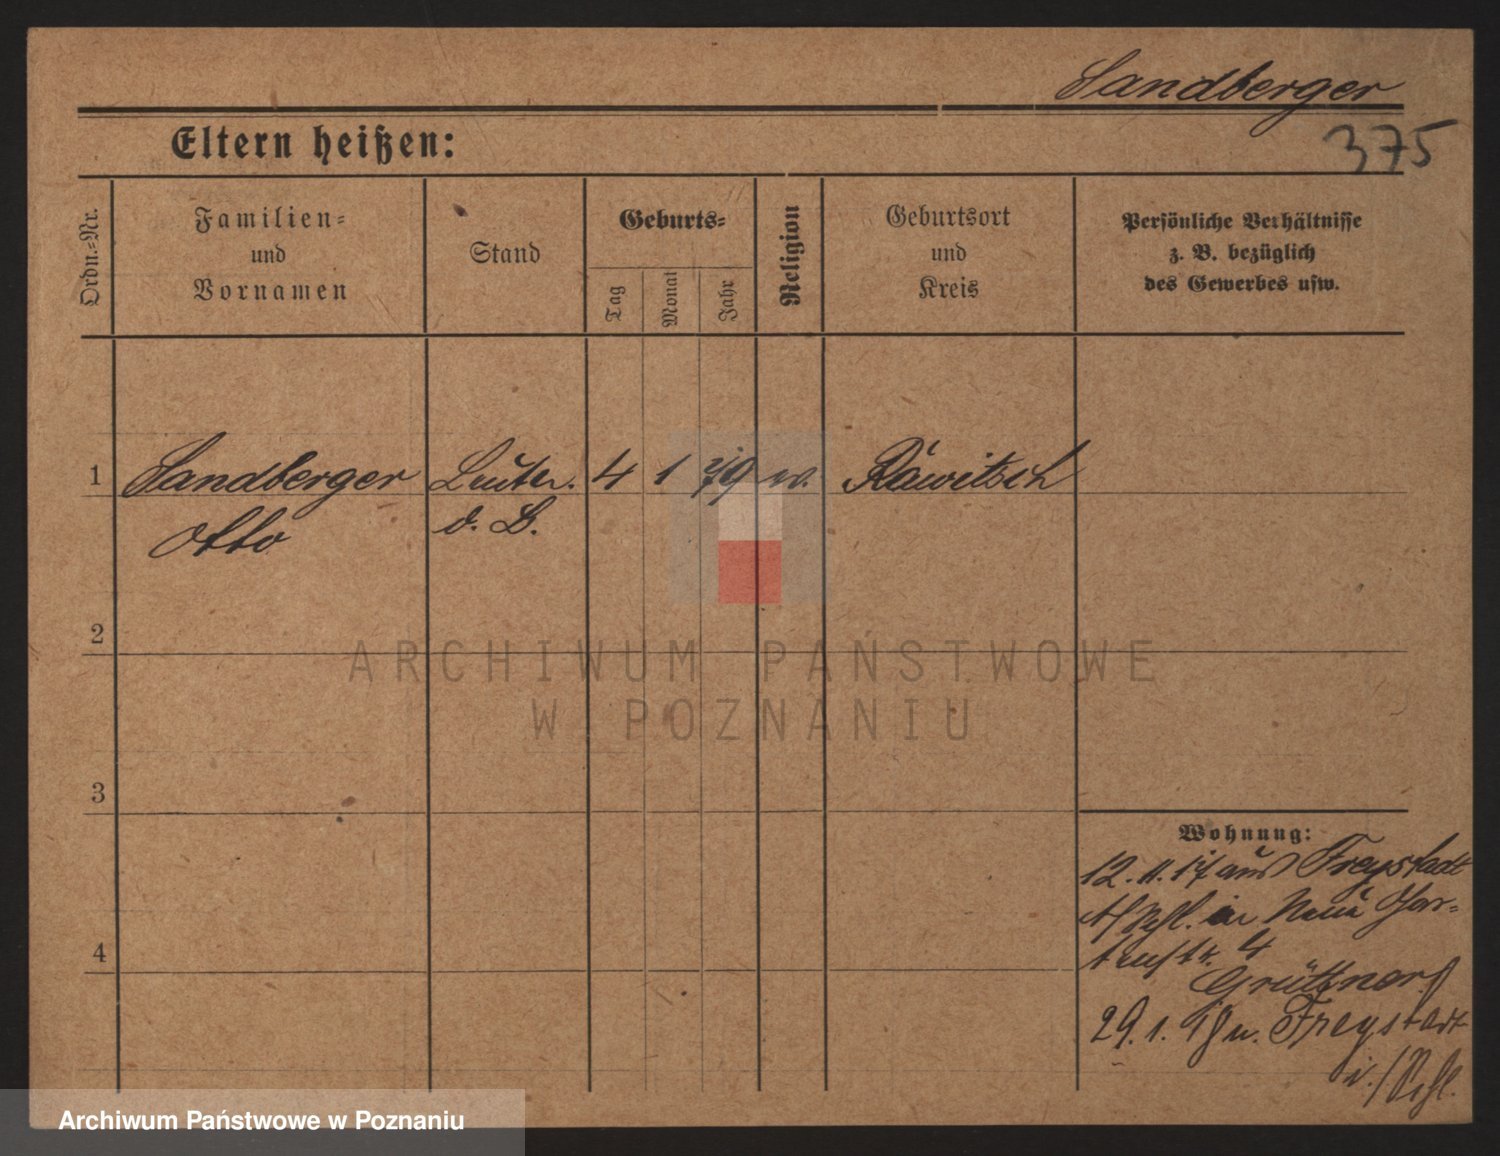 Sandberger
375
Eltern heißen:
Ordn.-Nr.
Familien-
und
Vornamen
Stand
Geburts-
Tag
Monat
Jahr
Religion
Geburtsort
und
Kreis
Persönliche Verhältnisse
z. B. bezüglich
des Gewerbes usw.
1
Sandberger
Otto
Leutn.
d. L.
4
1
79
Rawitsch
2
3
4
Wohnung:
12. 11. 17 aus Freystadt
N/Schl. in Neue Gar-
tenstr. 4
Grüttner
29. 1. 18 n. Freystadt
i./Schl.
ARCHIWUM PAŃSTWOWE
W POZNANIU
Archiwum Państwowe w Poznaniu